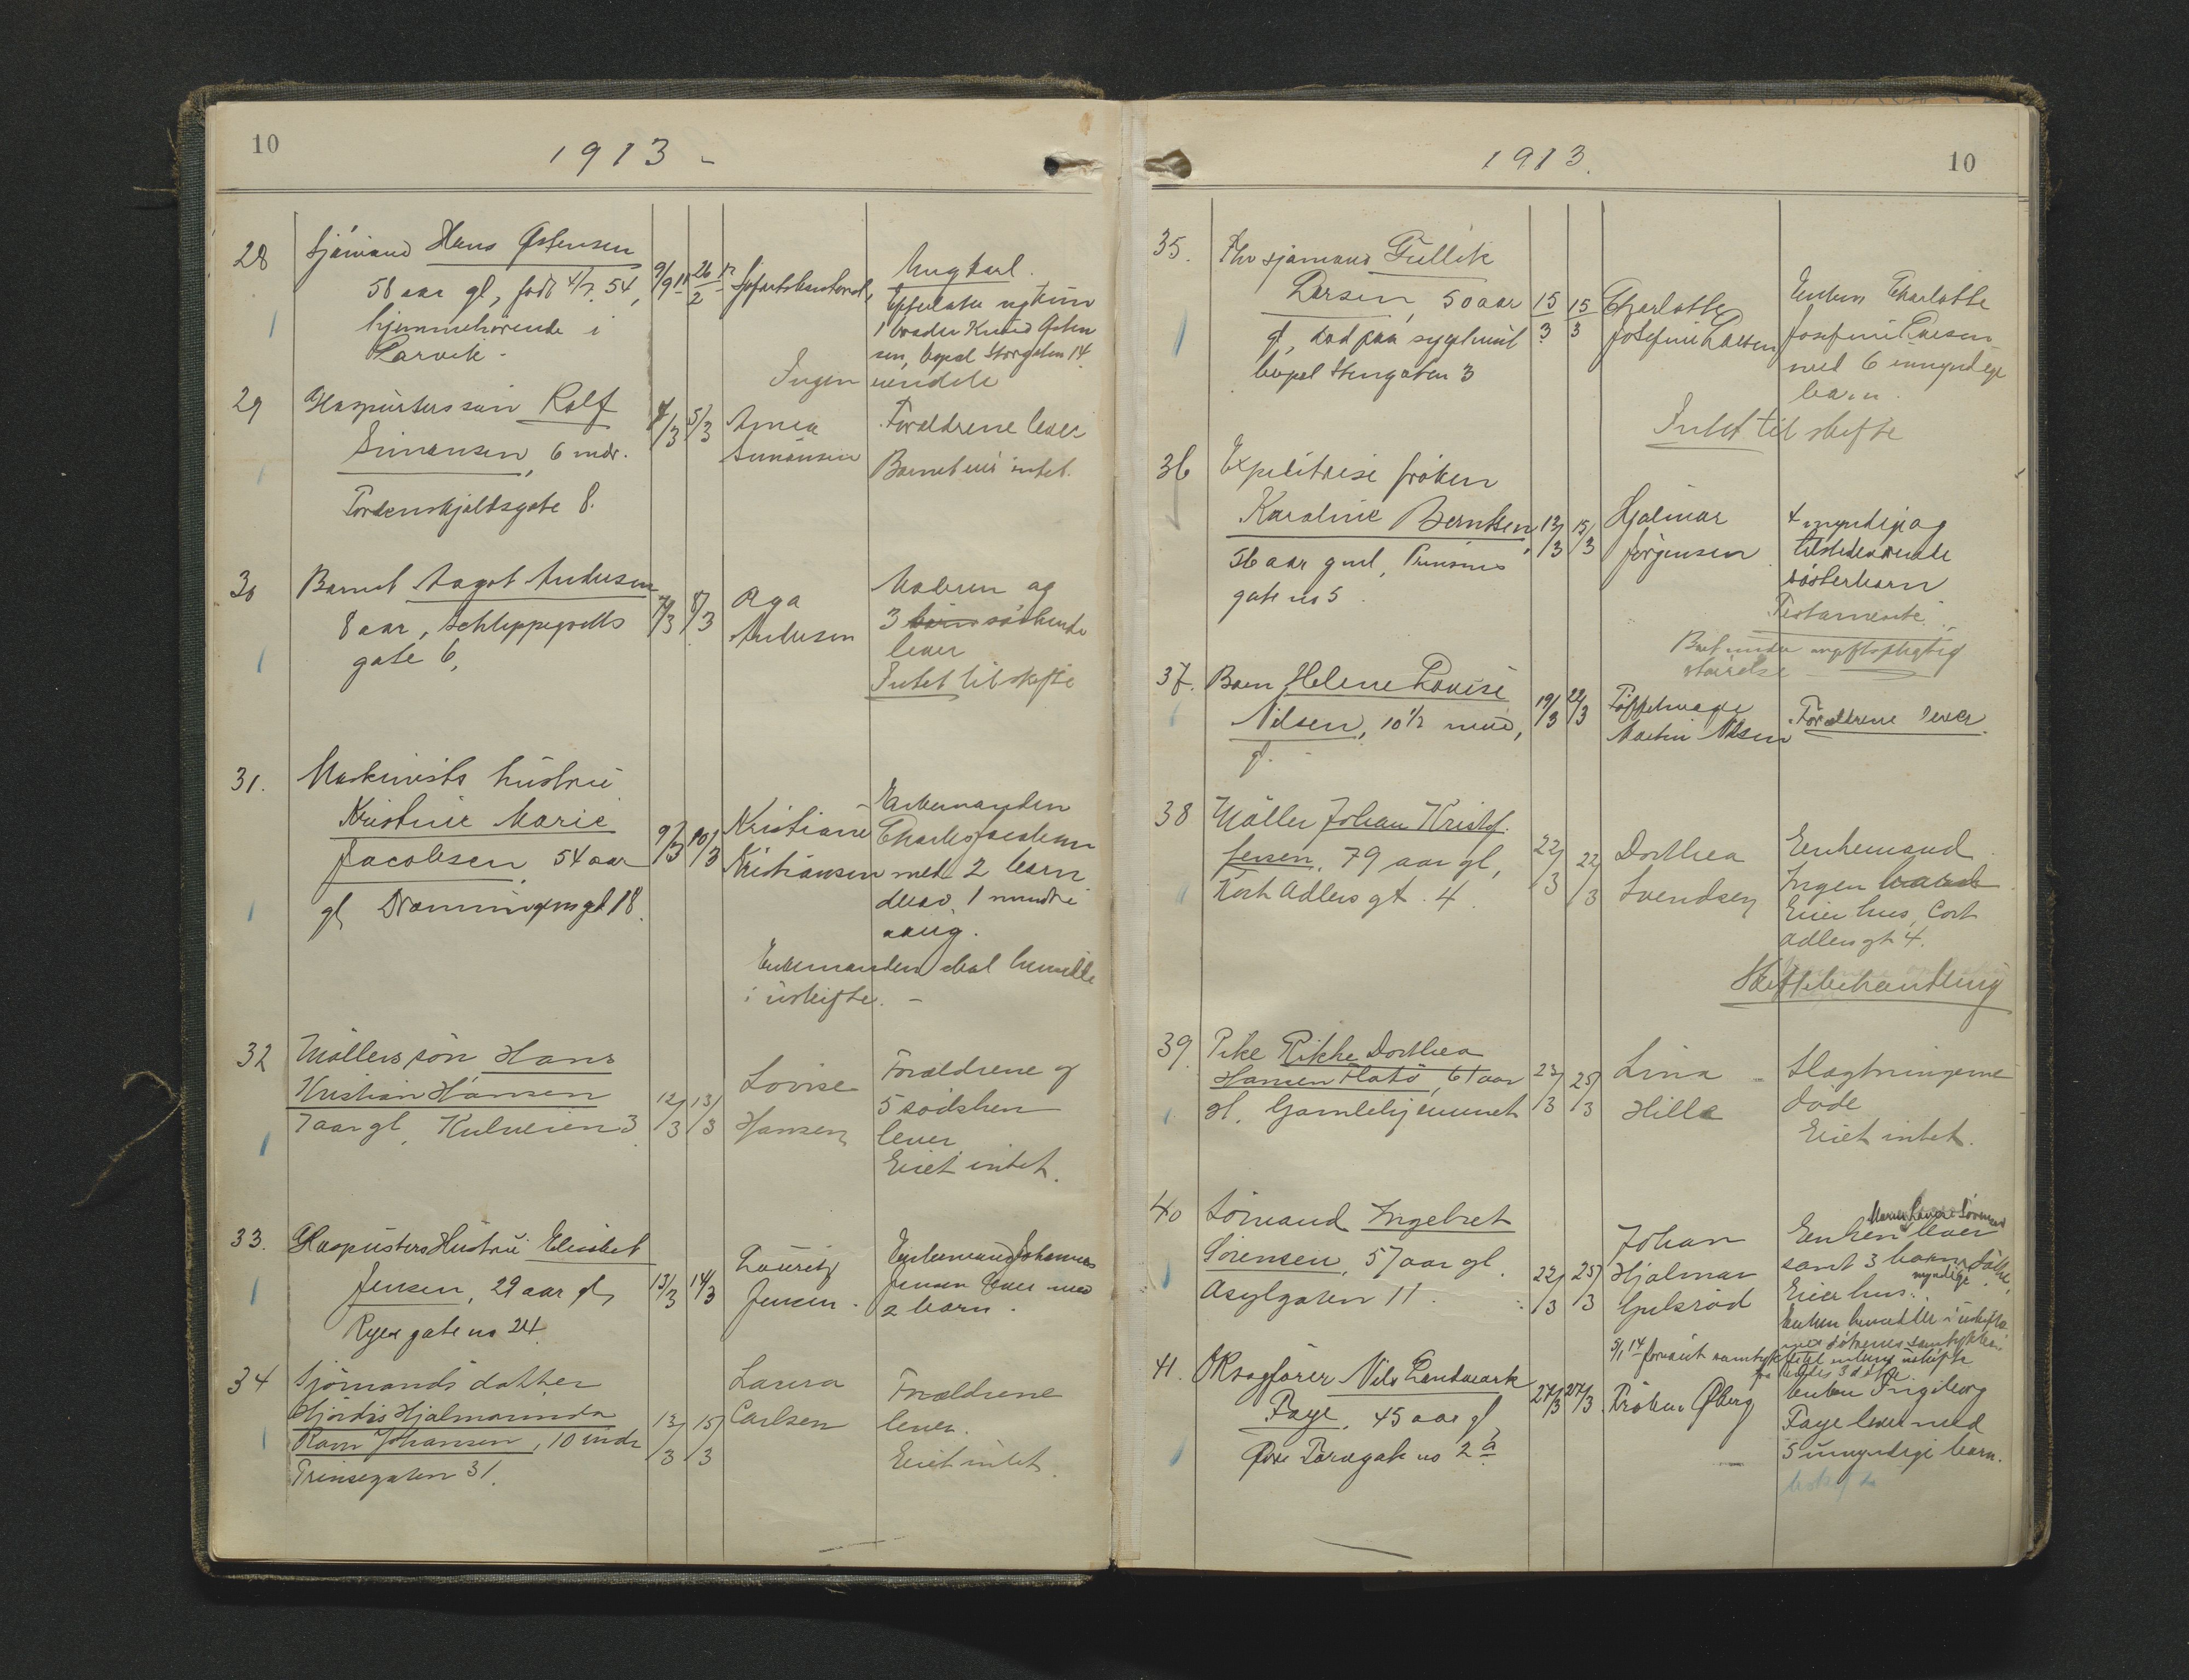 10
1913 -
28
Sjømand Hans Østensen
58 aar gl, født 4/7. 54,
hjemmehørende i
Larvik -
9/9 11
26/2 12
Sjøfartskontoret,
Ungkarl.
Efterlater sig kun
1 broder Knud Østen
sen, bopæl Storgaten 14
Ingen
29
Glaspusters søn Rolf
Simensen, 6 mdr.
Tordenskjoldsgate 8.
4/3
5/3
Anna
Simensen
Forældrene lever
Barnet eier intet.
30
Barnet Aagot Andersen
8 aar, Schleppegrells
gate 6,
7/3
8/3
Olga
Andersen
Moderen og
3 børn søskende
lever
Intet til skifte
31.
Maskinists hustru
Kristine Marie
Jacobsen, 54 aar
gl Dronningensgt 18.
9/3
10/3
Kristiane
Kristiansen
Enkemanden
Charles Jacobsen
med 2 barn
derav 1 mindre
aarig.
Enkemanden skal hensidde
i uskifte. -
32
Møllers søn Hans
Kristian Hansen
7 aar gl, Kulveien 3
12/3
13/3
Lovise
Hansen
Forældrene og
5 sødsken
lever
Eiet intet.
33.
Glaspusters Hustru Elisabet
Jensen, 29 aar gl,
Ryes gate no 24
13/3
14/3
Lauritz
Jensen.
Enkemand Johannes
Jensen lever med
2 barn.
34
Sjømands datter
Hjørdis Hjalmarinda
Ram Johansen, 10 mdr
Prinsegaten 31.
13/3
15/3
Laura
Carlsen
Forældrene
lever.
Eiet intet.
1913.
10
35.
Fhv sjømand Gullik
Larsen, 50 aar
gl, død paa sygehuset
bopæl Stengaten 3
15/3
15/3
Charlotte
Josefine Larsen
Enken Charlotte
Josefine Larsen
med 6 umyndige
barn.
Intet til skifte
36
Expeditrise frøken
Karoline Berntsen,
56 aar gml, Prinsens
gate no 5.
13/3
15/3
Hjalmar
Jørgensen
4 myndige og
tilstedeværende
søsterbarn
Testamente.
Boet under avgiftspligtig
størrelse
37.
Barn Helene Lovise
Nilsen, 10 1/2 mnd,
gl. -
19/3
22/3
Martin Nilsen
Forældrene lever.
38
Møller Johan Kristof.
Jensen, 79 aar gl,
Kort Adlers gt. 4.
22/3
22/3
Dorthea
Svendsen
Enkemand
Ingen
Eier hus, Cort
Adlers gt 4.
Skiftebehandling
39.
Pike Rikke Dorthea
Hansen Flatø, 61 aar
gl. Gamlehjemmet
23/3
25/3
Lina
Hille
Slægtningerne
døde
Eiet intet.
40
Sømand Ingebret
Sørensen, 57 aar gl.
Asylgaten 11.
22/3
25/3
Johan
Hjalmar
Gulsrød
Enken lever
samt 3 barn, døtre,
myndige.
Eier hus.
Enken hensidder i uskifte
med døtrenes samtykke
41.
O.R.sagfører Nils Landmark
Faye, 45 aar gl
Øvre Torvegate no 2 a
27/3
27/3
Frøken Øberg
Enken Ingeborg
Faye lever med
5 umyndige barn.